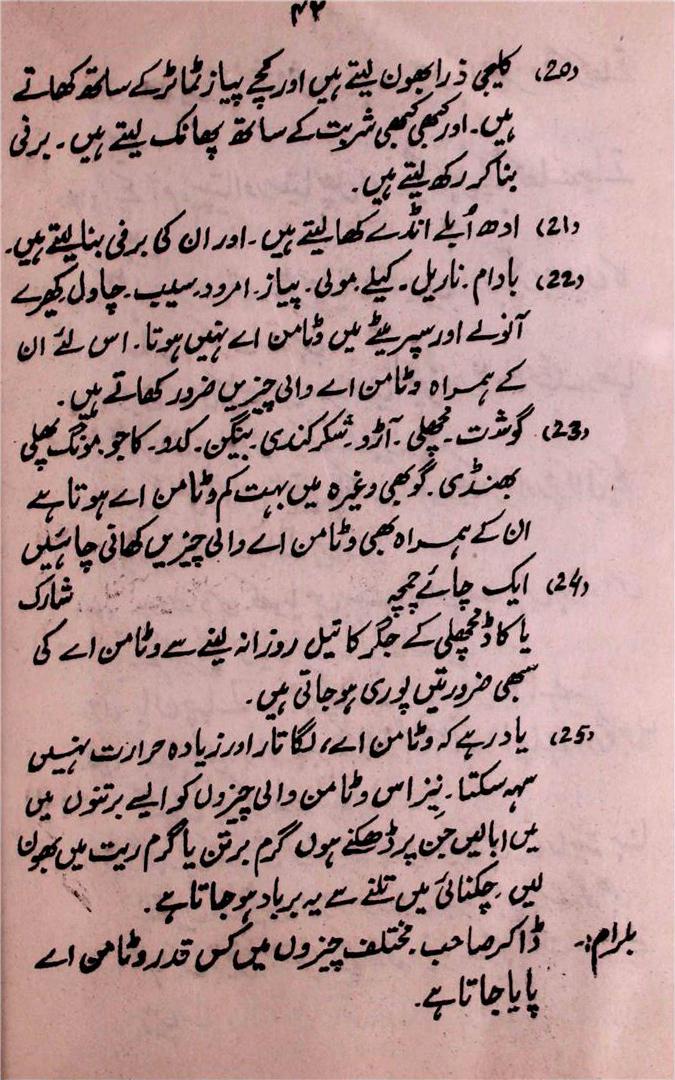 ۴۲
(20) کلیجی ذرا بھون لیتے ہیں اور کچے پیاز ٹماٹر کے ساتھ کھاتے
ہیں۔ اور کبھی کبھی شربت کے ساتھ پھانک لیتے ہیں۔ برفی
بنا کر رکھ لیتے ہیں۔
(21) ادھ اُبلے انڈے کھا لیتے ہیں۔ اور ان کی برفی بنا لیتے ہیں۔
(22) بادام۔ ناریل۔ کیلے۔ مولی۔ پیاز۔ امرود۔ سیب۔ چاول۔ کھیرے
آنولے اور سپریٹے میں وٹامن اے نہیں ہوتا۔ اس لئے ان
کے ہمراہ وٹامن اے والی چیزیں ضرور کھاتے ہیں۔
(23) گوشت۔ مچھلی۔ آڑو۔ شکر کندی۔ بینگن۔ کدو۔ کاجو۔ مونگ پھلی
بھنڈی۔ گوبھی وغیرہ میں بہت کم وٹامن اے ہوتا ہے
ان کے ہمراہ بھی وٹامن اے والی چیزیں کھانی چاہئیں
(24) ایک چائے چمچہ شارک
یا کاڈ مچھلی کے جگر کا تیل روزانہ لینے سے وٹامن اے کی
سبھی ضرورتیں پوری ہو جاتی ہیں۔
(25) یاد رہے کہ وٹامن اے، لگاتار اور زیادہ حرارت نہیں
سہہ سکتا۔ نیز اس وٹامن والی چیزوں کو ایسے برتنوں میں
میں ابالیں جن پر ڈھکنے ہوں گرم برتن یا گرم ریت میں بھون
لیں۔ چکنائی میں تلنے سے یہ برباد ہو جاتا ہے۔
بلرام:۔ ڈاکٹر صاحب۔ مختلف چیزوں میں کس قدر وٹامن اے
پایا جاتا ہے۔